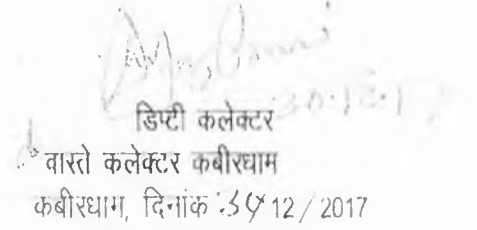 डिप्टी कलेक्टर
वास्ते कलेक्टर कबीरधाम
कबीरधाम, दिनांक 12/2017